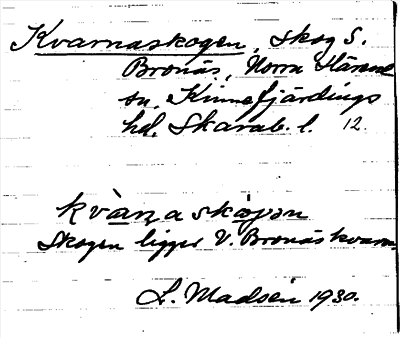 Kvarnaskogen, skog S.
Bronäs, Norra Härene
sn. Kinnefjärdings
hd. Skarab. l. 12.
kvàrṇa skogən
Skogen ligger V. Bronäs kvarn.
L. Madsén 1930.